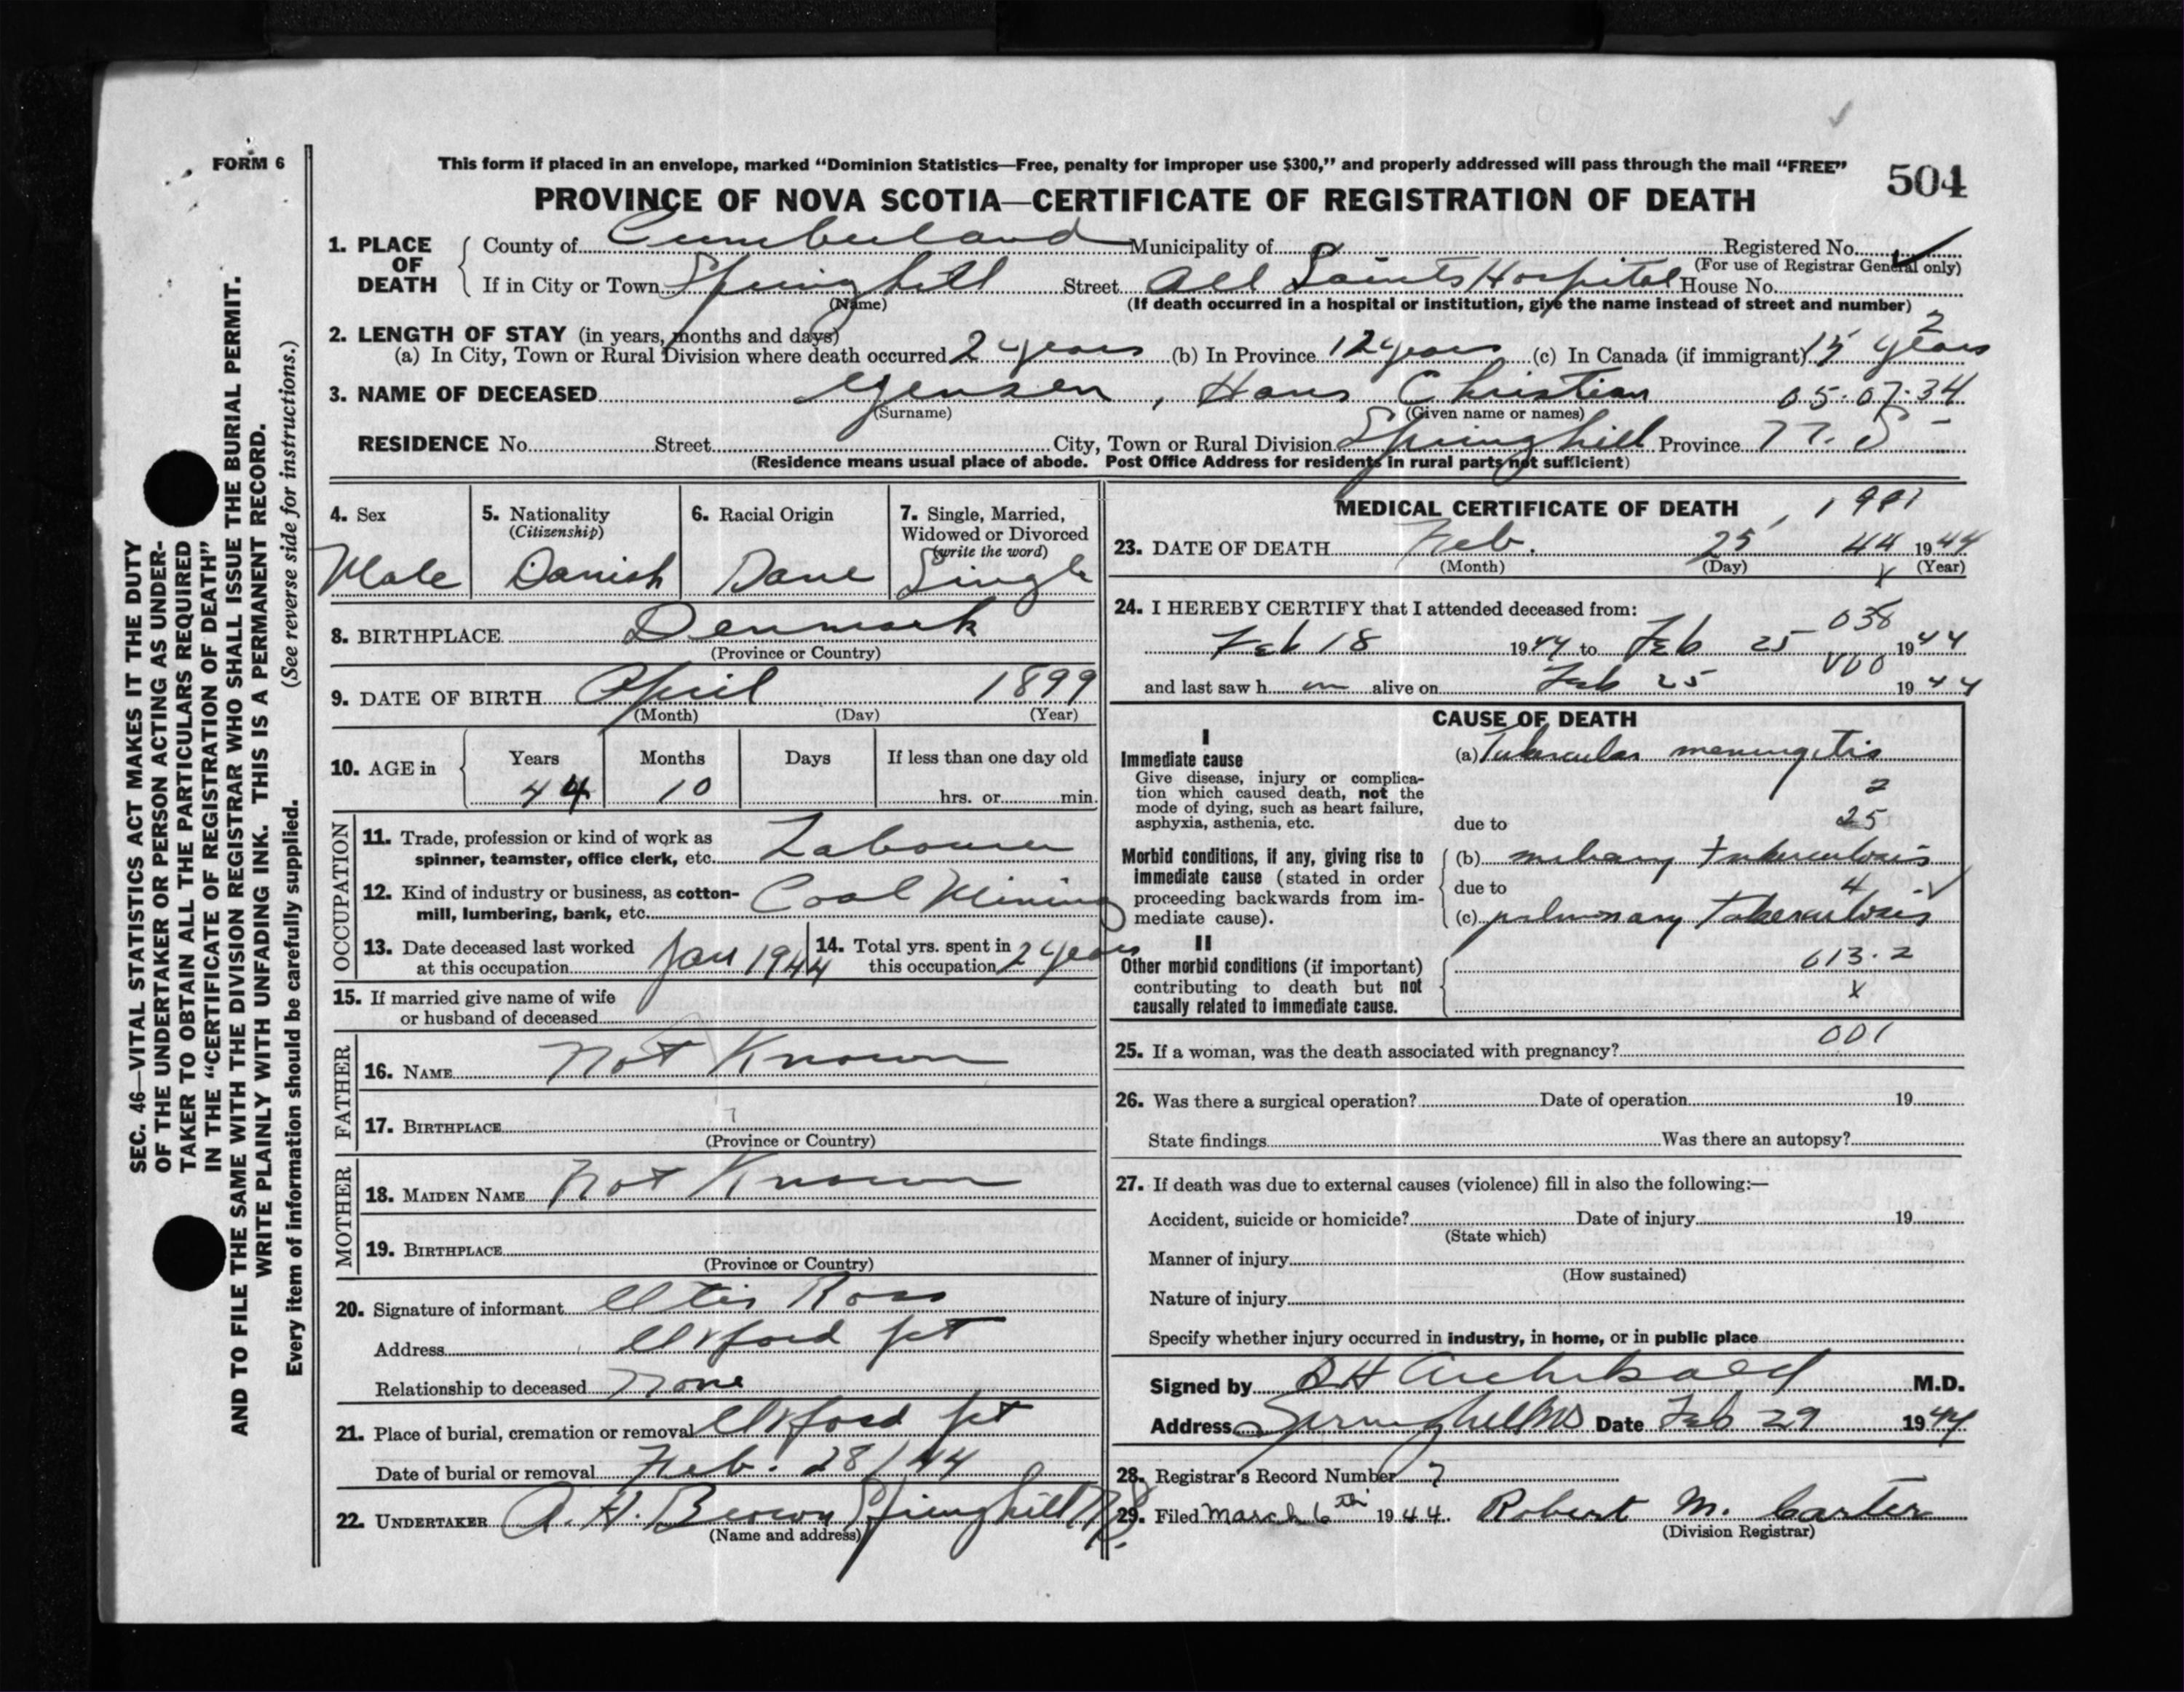 FORM 6
This form if placed in an envelope, marked “Dominion Statistics—Free, penalty for improper use $300,” and properly addressed will pass through the mail “FREE”
504
PROVINCE OF NOVA SCOTIA—CERTIFICATE OF REGISTRATION OF DEATH
SEC. 46—VITAL STATISTICS ACT MAKES IT THE DUTY
OF THE UNDERTAKER OR PERSON ACTING AS UNDER-
TAKER TO OBTAIN ALL THE PARTICULARS REQUIRED
IN THE “CERTIFICATE OF REGISTRATION OF DEATH”
AND TO FILE THE SAME WITH THE DIVISION REGISTRAR WHO SHALL ISSUE THE BURIAL PERMIT.
WRITE PLAINLY WITH UNFADING INK. THIS IS A PERMANENT RECORD.
Every item of information should be carefully supplied. (See reverse side for instructions.)
1. PLACE OF DEATH
County of Cumberland Municipality of Registered No.
(For use of Registrar General only)
If in City or Town Springhill Street All Saints Hospital House No.
(Name) (If death occurred in a hospital or institution, give the name instead of street and number)
2. LENGTH OF STAY (in years, months and days) 2
(a) In City, Town or Rural Division where death occurred 2 years (b) In Province 12 years (c) In Canada (if immigrant) 15 years
3. NAME OF DECEASED Yensen, Hans Christian 05-07-34
(Surname) (Given name or names)
RESIDENCE No. Street City, Town or Rural Division Springhill Province N. S
(Residence means usual place of abode. Post Office Address for residents in rural parts not sufficient)
4. Sex Male
5. Nationality (Citizenship) Danish
6. Racial Origin Dane
7. Single, Married, Widowed or Divorced (write the word) Single
8. BIRTHPLACE Denmark
(Province or Country)
9. DATE OF BIRTH April 1899
(Month) (Day) (Year)
10. AGE in Years Months Days If less than one day old
44 10 hrs. or min.
OCCUPATION
11. Trade, profession or kind of work as
spinner, teamster, office clerk, etc. Labourer
12. Kind of industry or business, as cotton-
mill, lumbering, bank, etc. Coal Mining
13. Date deceased last worked
at this occupation Jan 1944
14. Total yrs. spent in
this occupation 2 years
15. If married give name of wife
or husband of deceased
FATHER
16. NAME Not Known
17. BIRTHPLACE
(Province or Country)
MOTHER
18. MAIDEN NAME Not Known
19. BIRTHPLACE
(Province or Country)
20. Signature of informant Otis Ross
Address Oxford Jct
Relationship to deceased None
21. Place of burial, cremation or removal Oxford Jct
Date of burial or removal Feb. 28/44
22. UNDERTAKER A. H. Brown Springhill N.S.
(Name and address)
MEDICAL CERTIFICATE OF DEATH
23. DATE OF DEATH Feb. 25 44 1944
(Month) (Day) (Year)
24. I HEREBY CERTIFY that I attended deceased from:
Feb 18 1944 to Feb 25 1944
and last saw h im alive on Feb 25 1944
CAUSE OF DEATH
I
Immediate cause
Give disease, injury or complica-
tion which caused death, not the
mode of dying, such as heart failure,
asphyxia, asthenia, etc.
(a) Tubercular meningitis
2
due to 25
Morbid conditions, if any, giving rise to
immediate cause (stated in order
proceeding backwards from im-
mediate cause).
(b) miliary tuberculosis
due to 4
(c) pulmonary tuberculosis
II
Other morbid conditions (if important)
contributing to death but not
causally related to immediate cause.
013.2
X
001
25. If a woman, was the death associated with pregnancy?
26. Was there a surgical operation? Date of operation 19
State findings Was there an autopsy?
27. If death was due to external causes (violence) fill in also the following:—
Accident, suicide or homicide? Date of injury 19
(State which)
Manner of injury
(How sustained)
Nature of injury
Specify whether injury occurred in industry, in home, or in public place
Signed by Archibald M.D.
Address Springhill NS Date Feb 29 1944
28. Registrar's Record Number 7
29. Filed March 6th 1944. Robert M. Carter
(Division Registrar)